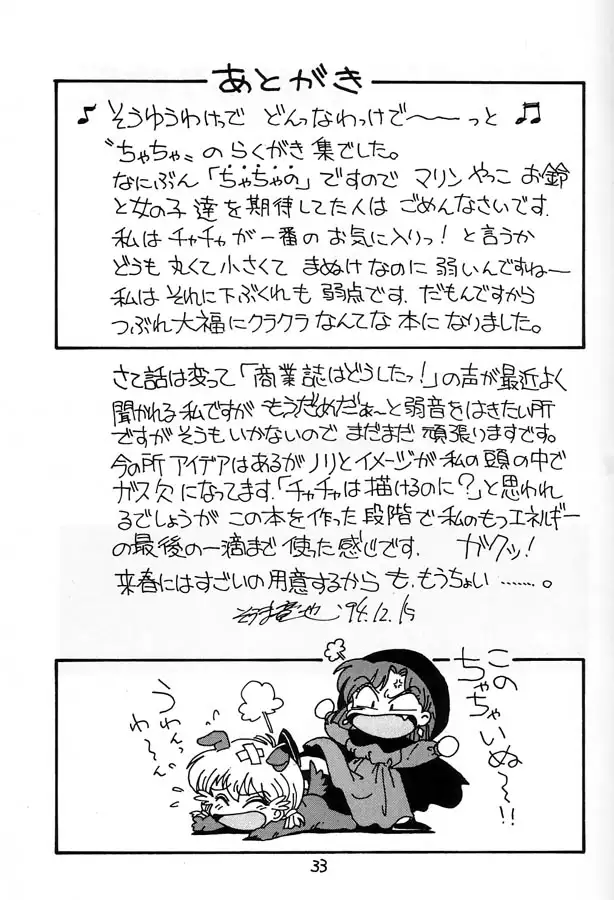 あとがき
♪ そうゆうわけっで どんっなわっけで〜〜っと ♫
〝ちゃちゃ〟のらくがき集でした。
なにぶん「ちゃちゃの」ですので マリン やっこ お鈴
と女の子達を期待してた人は ごめんなさいです.
私は チャチャが一番の お気に入りっ! と言うか
どうも丸くて小さくて まぬけなのに 弱いんですねー
私は それに下ぶくれも 弱点です. だもんですから
つぶれ大福にクラクラ なんてな 本になりました。
さて話は変って「商業誌はどうしたっ!」の声が最近よく
聞かれる私ですが もうだめだぁ〜と弱音をはきたい所
ですが そうもいかないので まだまだ 頑張りますです。
今の所 アイデアはあるが ノリとイメージが 私の頭の中で
ガス欠になってます.「チャチャは描けるのに?」と思われ
るでしょうが この本を作った段階で私のもつエネルギー
の最後の一滴まで使った感じです. ガクッ!
来春にはすごいの用意するから も、もうちょい ……。
'94.12.15
この
ちゃちゃいぬ〜〜!!
うわんっ
わ〜〜ん
33